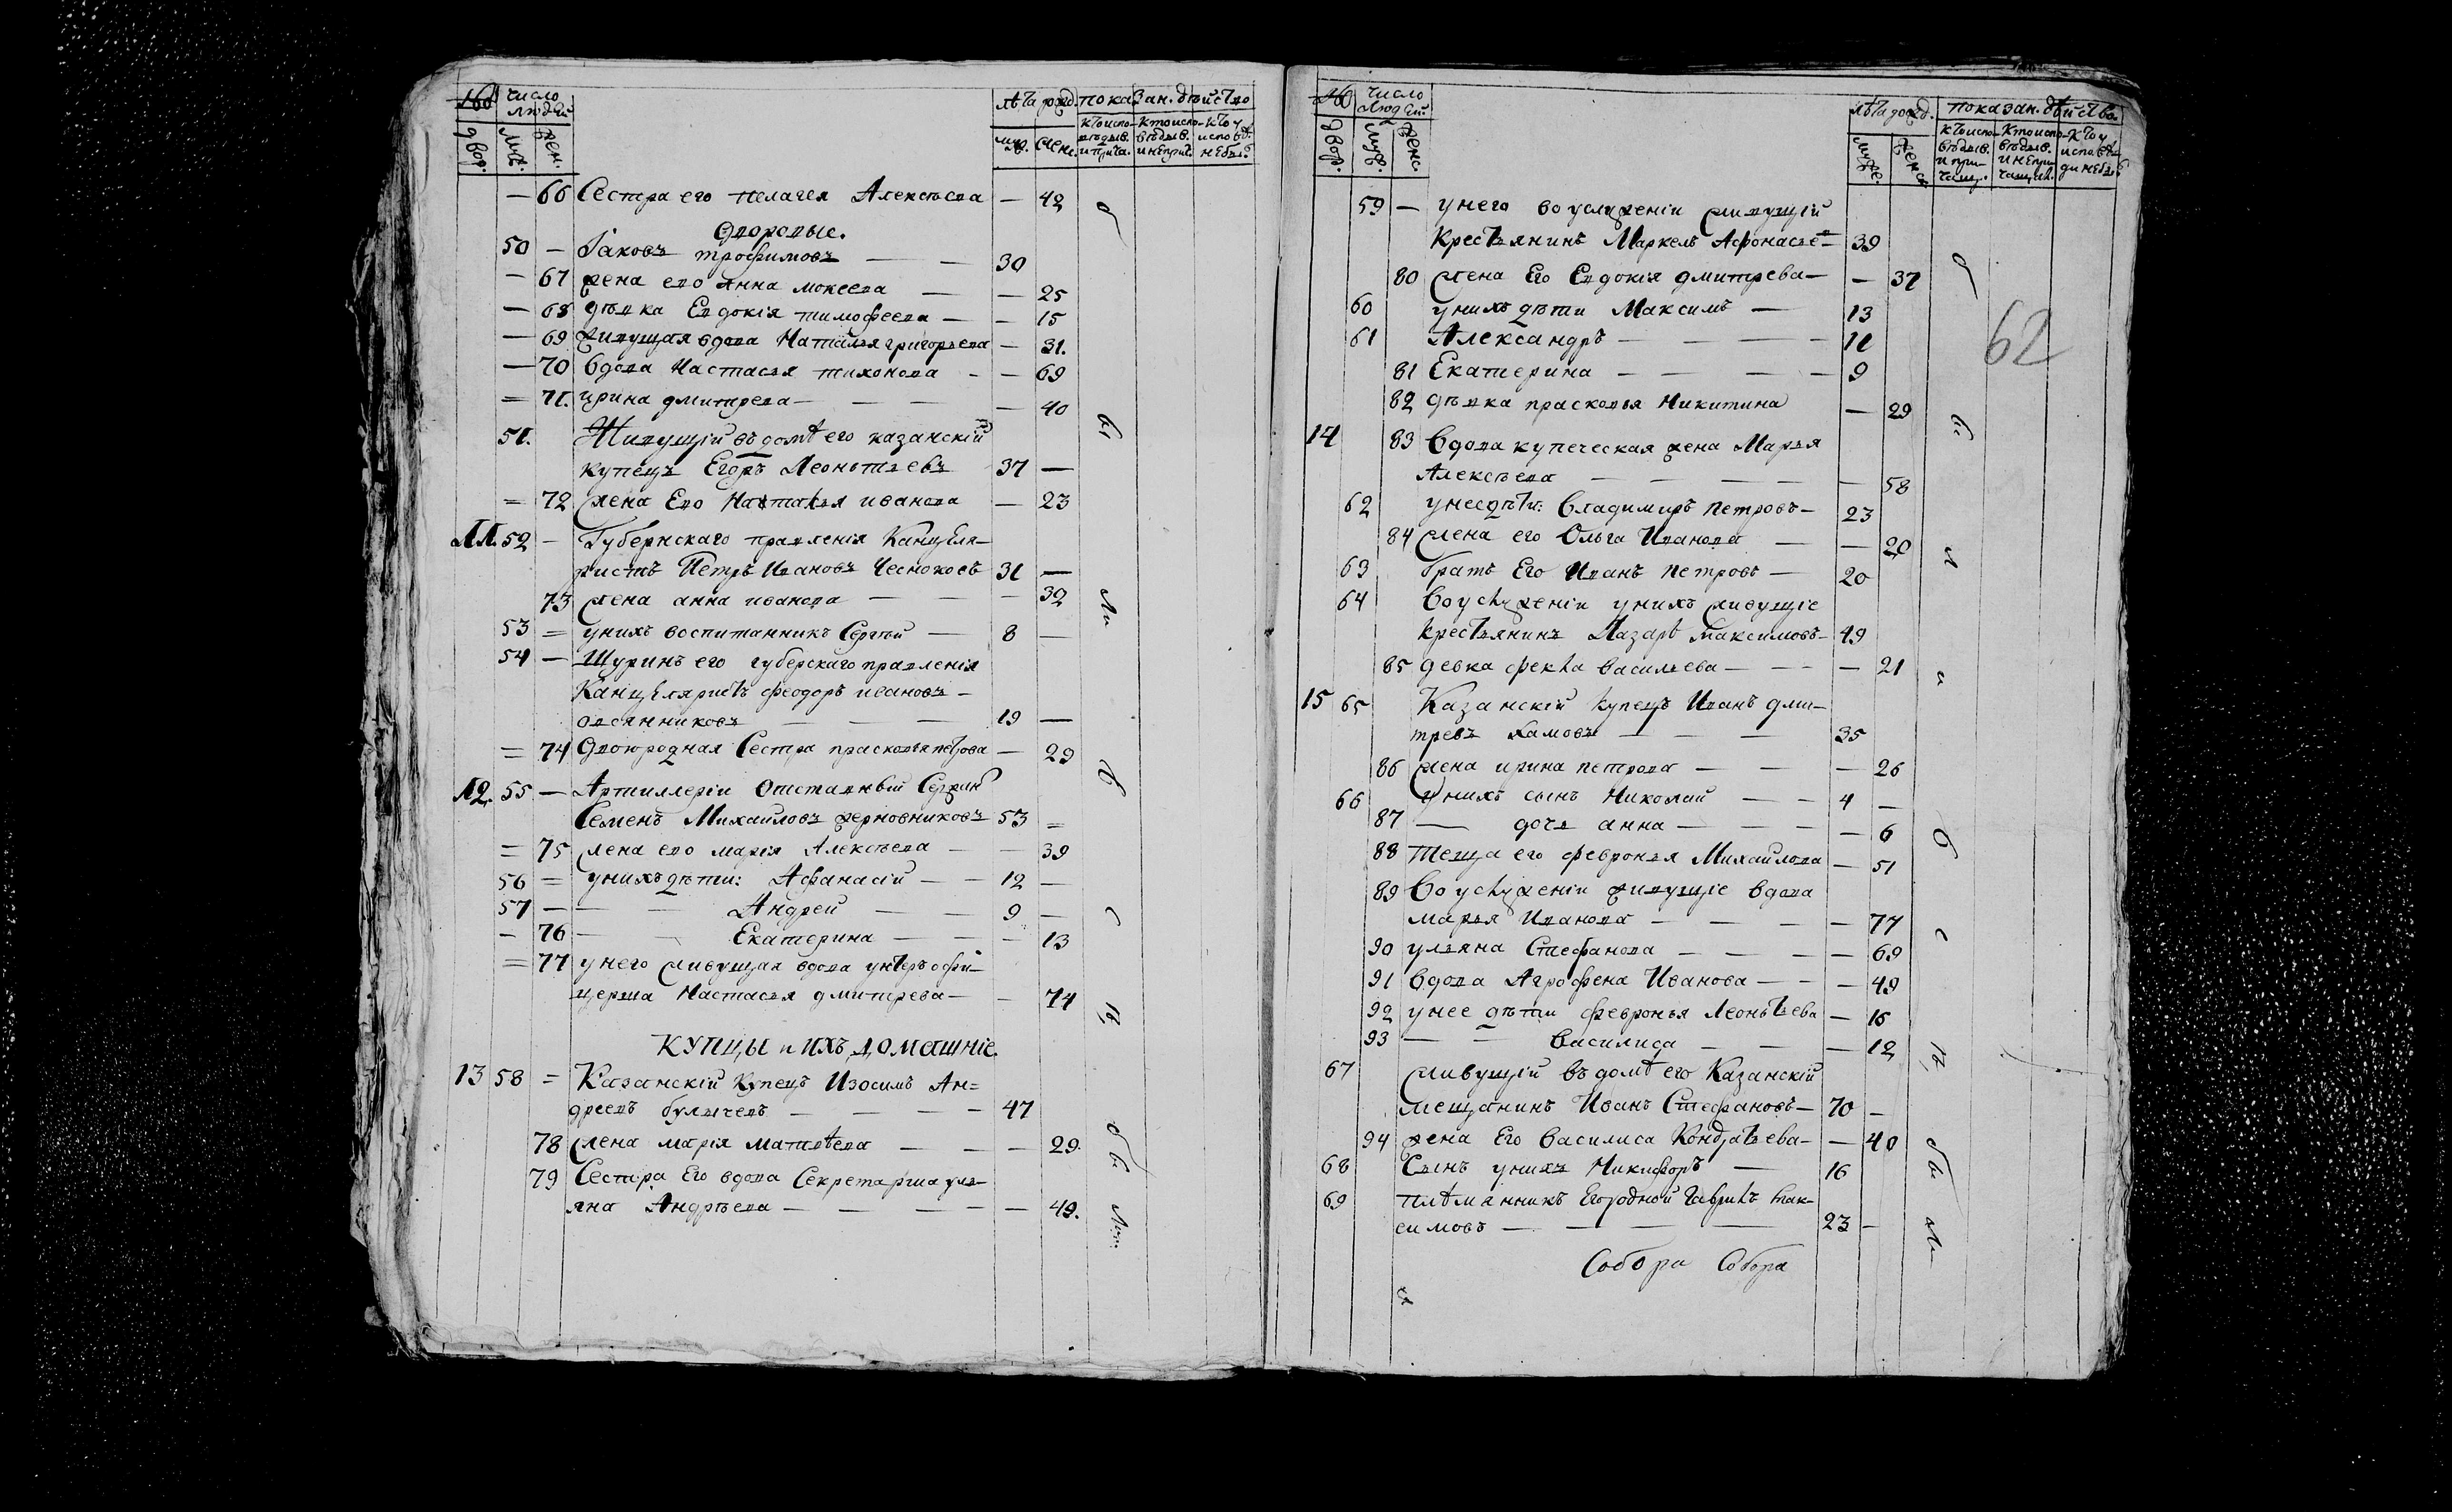 число людей лѣта рожд. показан. дѣйство
двор. муж. жен. муж. жен. кто испо- вѣдыв. и прича. кто испо- вѣдыв. и неприч. кто у исповѣд. не был.
— 66 Сестра его пелагея Алексѣева — 42
дворовые.
50 — Іаковъ трофимовъ — — 30
— 67 жена ево анна мокеева — — 25
— 68 дѣвка Евдокія тимофеева — — 15
— 69 живущая вдова Наталья григорьева — 31.
— 70 вдова Настасья тихонова — — 69
= 71. ирина дмитрева — — — 40
51. Живущій въ домѣ его казанскій
купецъ Егоръ Леонтьевъ 37 —
= 72 жена Ево Наталья иванова — 23
11. 52 — Губернскаго правленія Канцеля-
ристъ Петръ Ивановъ Чесноковъ 31 —
73 жена анна иванова — — — 32
53 = унихъ воспитанникъ Сергѣй — 8 —
54 — Шуринъ его губерскаго правленія
Канцеляристъ феодоръ ивановъ —
овсянниковъ — — — 19 —
= 74 Двоюродная Сестра прасковья петрова — 29
12. 55 — Артиллеріи Отставный Сержан
Семенъ Михаиловъ жерновниковъ 53 =
= 75 жена ево марія Алексѣева — — 39
56 = унихъ дѣти: Афанасій — — 12 —
57 — — — Андрей — — 9 —
— 76 — — Екатерина — — — 13
= 77 унего живущая вдова унтеръ офи-
церша Настасья дмитрева — — 74
КУПЦЫ и ИХЪ ДОМАШНІЕ.
13 58 = Казанскій Купецъ Изосимъ Ан=
дреевъ булычевъ — — — — 47
78 жена марія матвѣева — — — 29.
79 Сестра Его вдова Секретарша уль-
яна Андрѣева — — — — — 49.
число людей. лѣта рожд. показан. дѣйство.
двор. муж. женс. муже. женск. кто испо- вѣдыв. и при- чащ. кто испо- вѣдыв. и непри- чащил. кто у исповѣ- ди небыл
59 — унего во услуженіи живущій
Крестьянинъ Маркелъ Афонасье 39
80 жена Его Евдокія дмитрева — — 37
60 унихъ дѣти Максимъ — 13
62
61 Александръ — — — — 11
81 Екатерина — — — — 9
82 дѣвка прасковья Никитина — 29
14 83 Вдова купеческая жена Марья
Алексѣева — — — — — 58
62 унее дѣти: Владимиръ петровъ — 23
84 жена его Ольга Иванова — — 20
63 братъ Его Иванъ петровъ — 20
64 Воуслуженіи унихъ живущіе
крестьянинъ Лазарь максимовъ — 49
85 девка фекла васильева — — — — 21
15 65 Казанскій купецъ Иванъ дми-
тревъ хамовъ — — — 35
86 жена ирина петрова — — — 26
66 унихъ сынъ Николай — — 4 —
87 — дочь анна — — — — 6
88 Теща его февронья Михаилова — 51
89 Воуслуженіи живущіе вдова
марья Иванова — — — — — 77
90 ульяна Стефанова — — — — 69
91 вдова Агрофена Иванова — — — 49
92 унее дѣти февронья Леонтьева — 15
93 — — Василиса — — — 12
67 живущій въ домѣ его Казанскій
мещанинъ Иванъ Стефановъ — 70 —
94 жена Его Василиса Кондратьева — — 40
68 Сынъ унихъ Никифоръ — 16
69 племянникъ Егородной Гаврилъ мак-
симовъ — — — — 23 —
Собора Собора